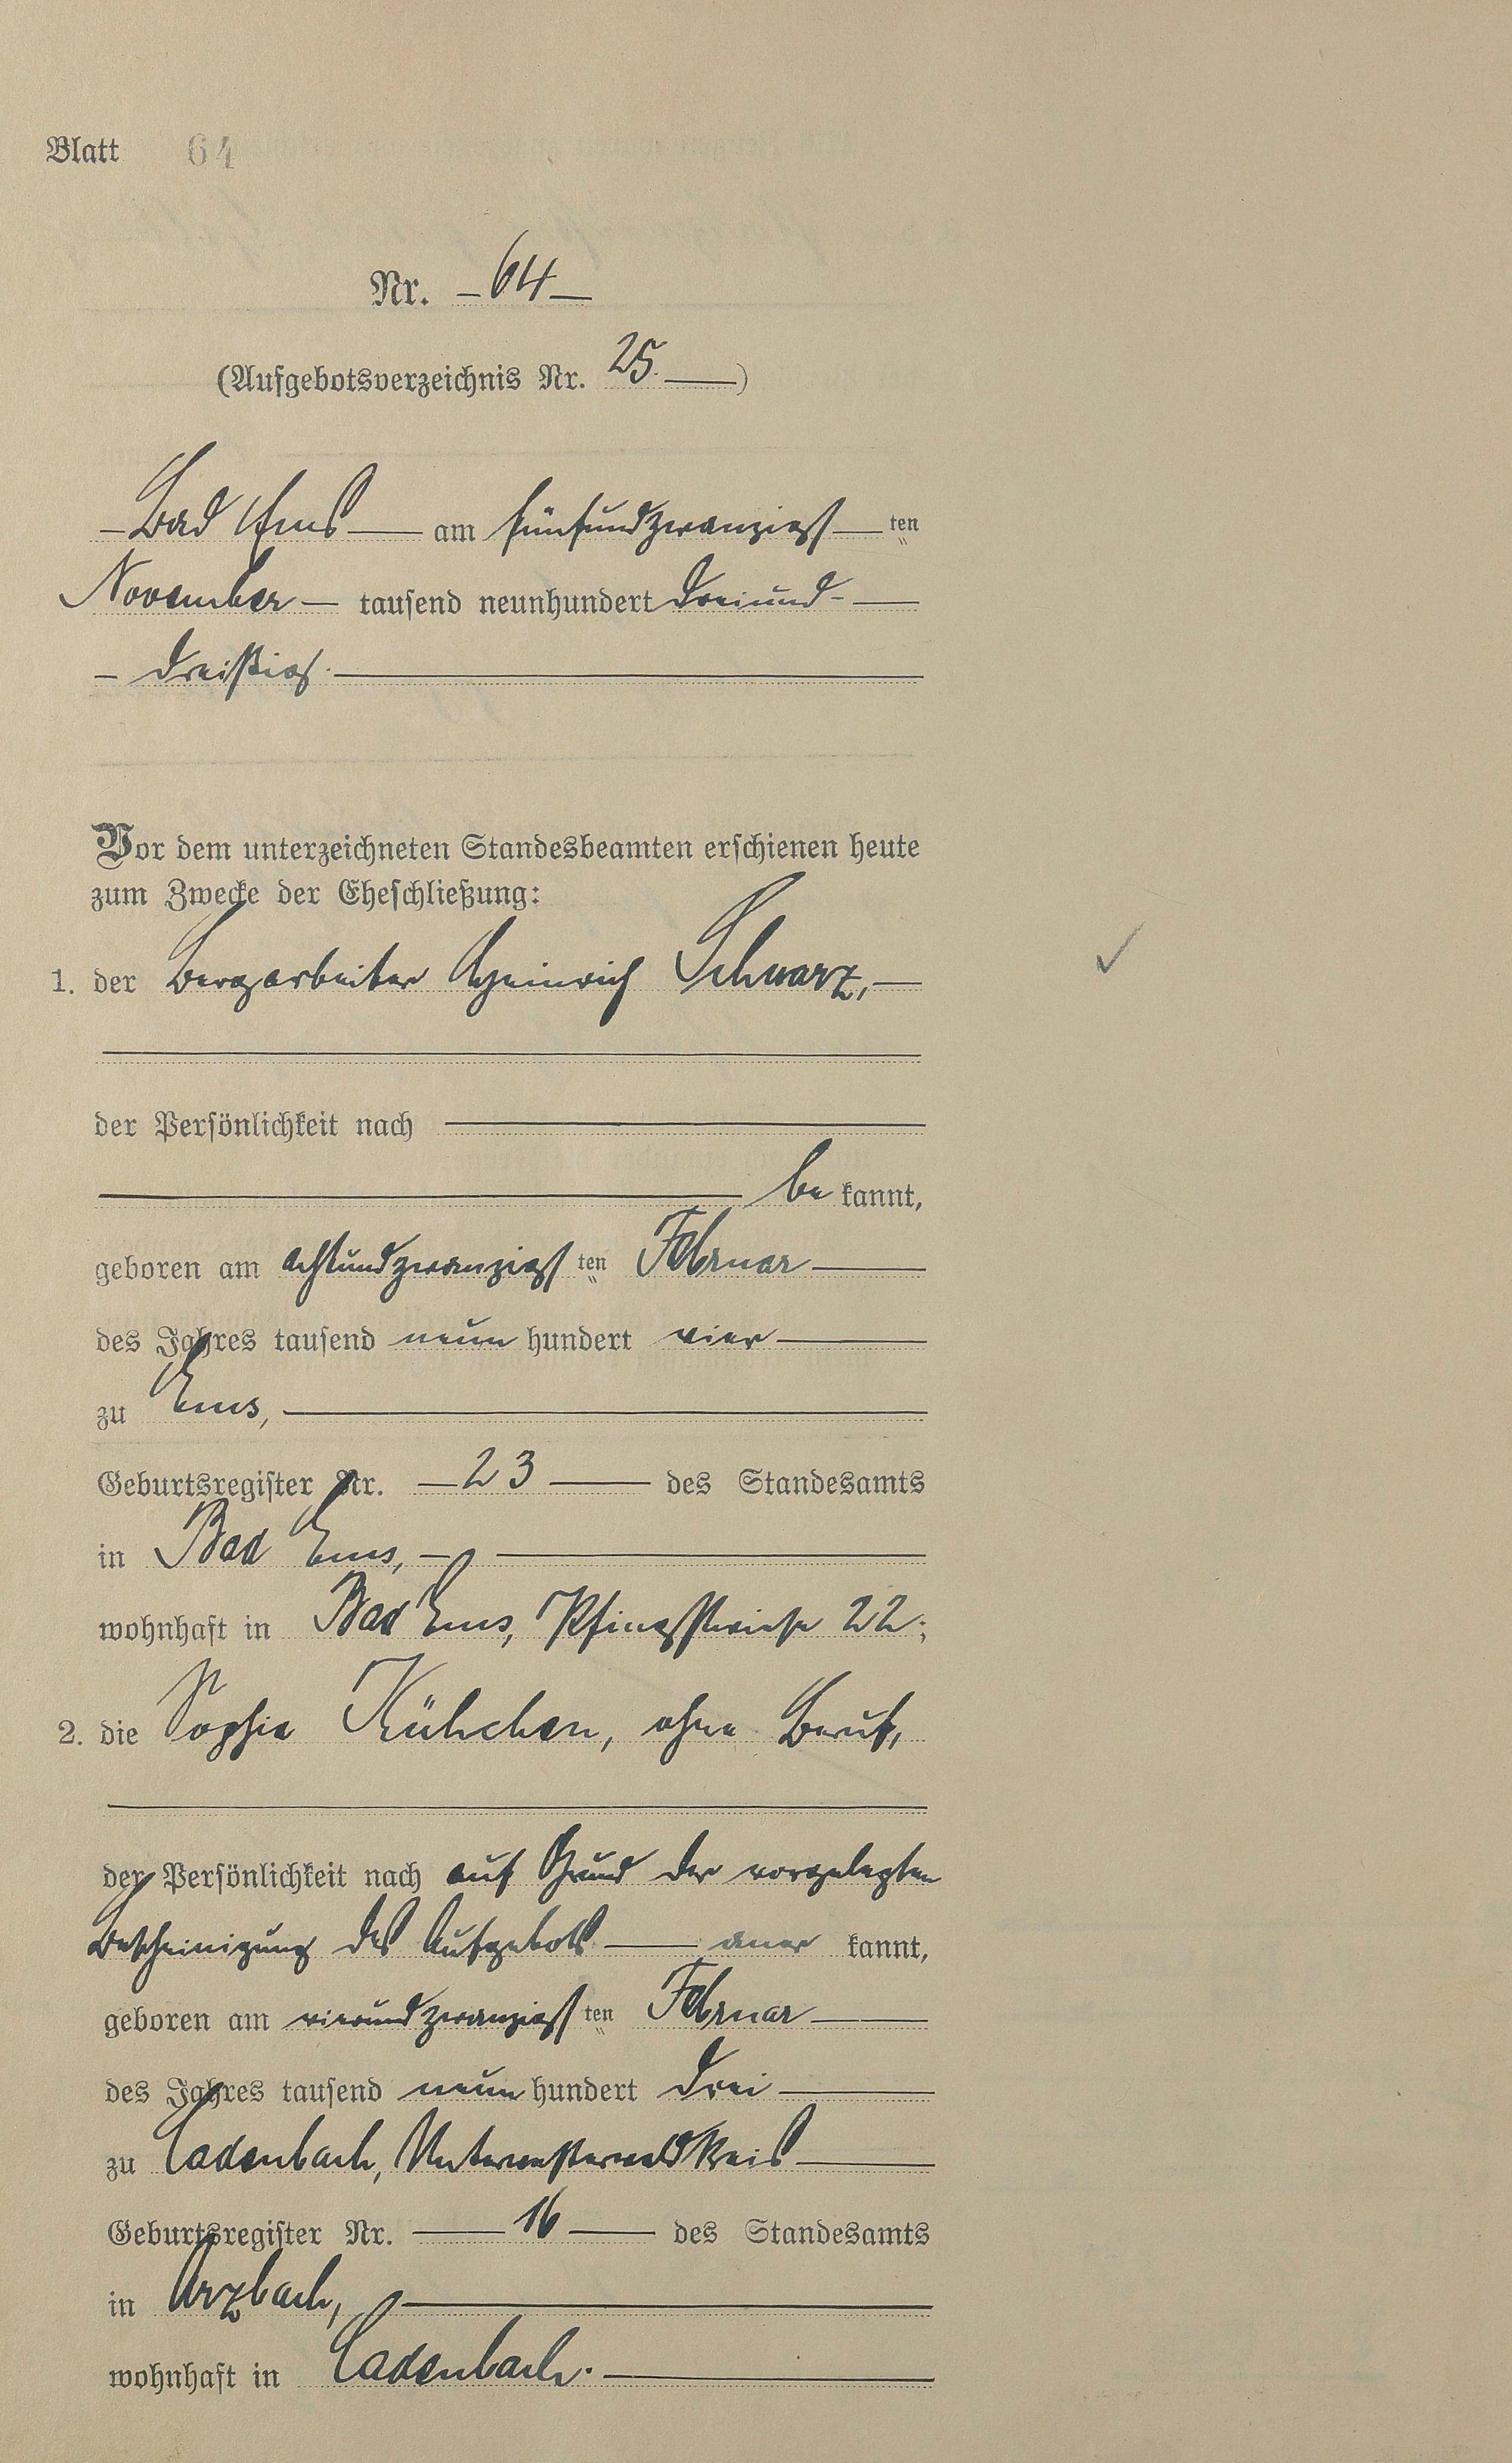 Blatt 64
Nr. – 64 –
(Aufgebotsverzeichnis Nr. 25. —)
– Bad Ems — am fünfundzwanzigst — ten
November – tausend neunhundert dreiund- —
– dreißig. —
Vor dem unterzeichneten Standesbeamten erschienen heute
zum Zwecke der Eheschließung:
1. der Bergarbeiter Heinrich Schwarz, —
der Persönlichkeit nach —
— be kannt,
geboren am achtundzwanzigst ten Februar —
des Jahres tausend neun hundert vier —
zu Ems, —
Geburtsregister Nr. — 23 — des Standesamts
in Bad Ems, — —
wohnhaft in Bad Ems, Pfingstwiese 22;
2. die Sophia Kühchen, ohne Beruf,
der Persönlichkeit nach auf Grund der vorgelegten
Bescheinigung des Aufgebots — aner kannt,
geboren am vierundzwanzigst ten Februar —
des Jahres tausend neun hundert drei —
zu Cadenbach, Unterwesterwaldkreis —
Geburtsregister Nr. — 16 — des Standesamts
in Arzbach, —
wohnhaft in Cadenbach. —